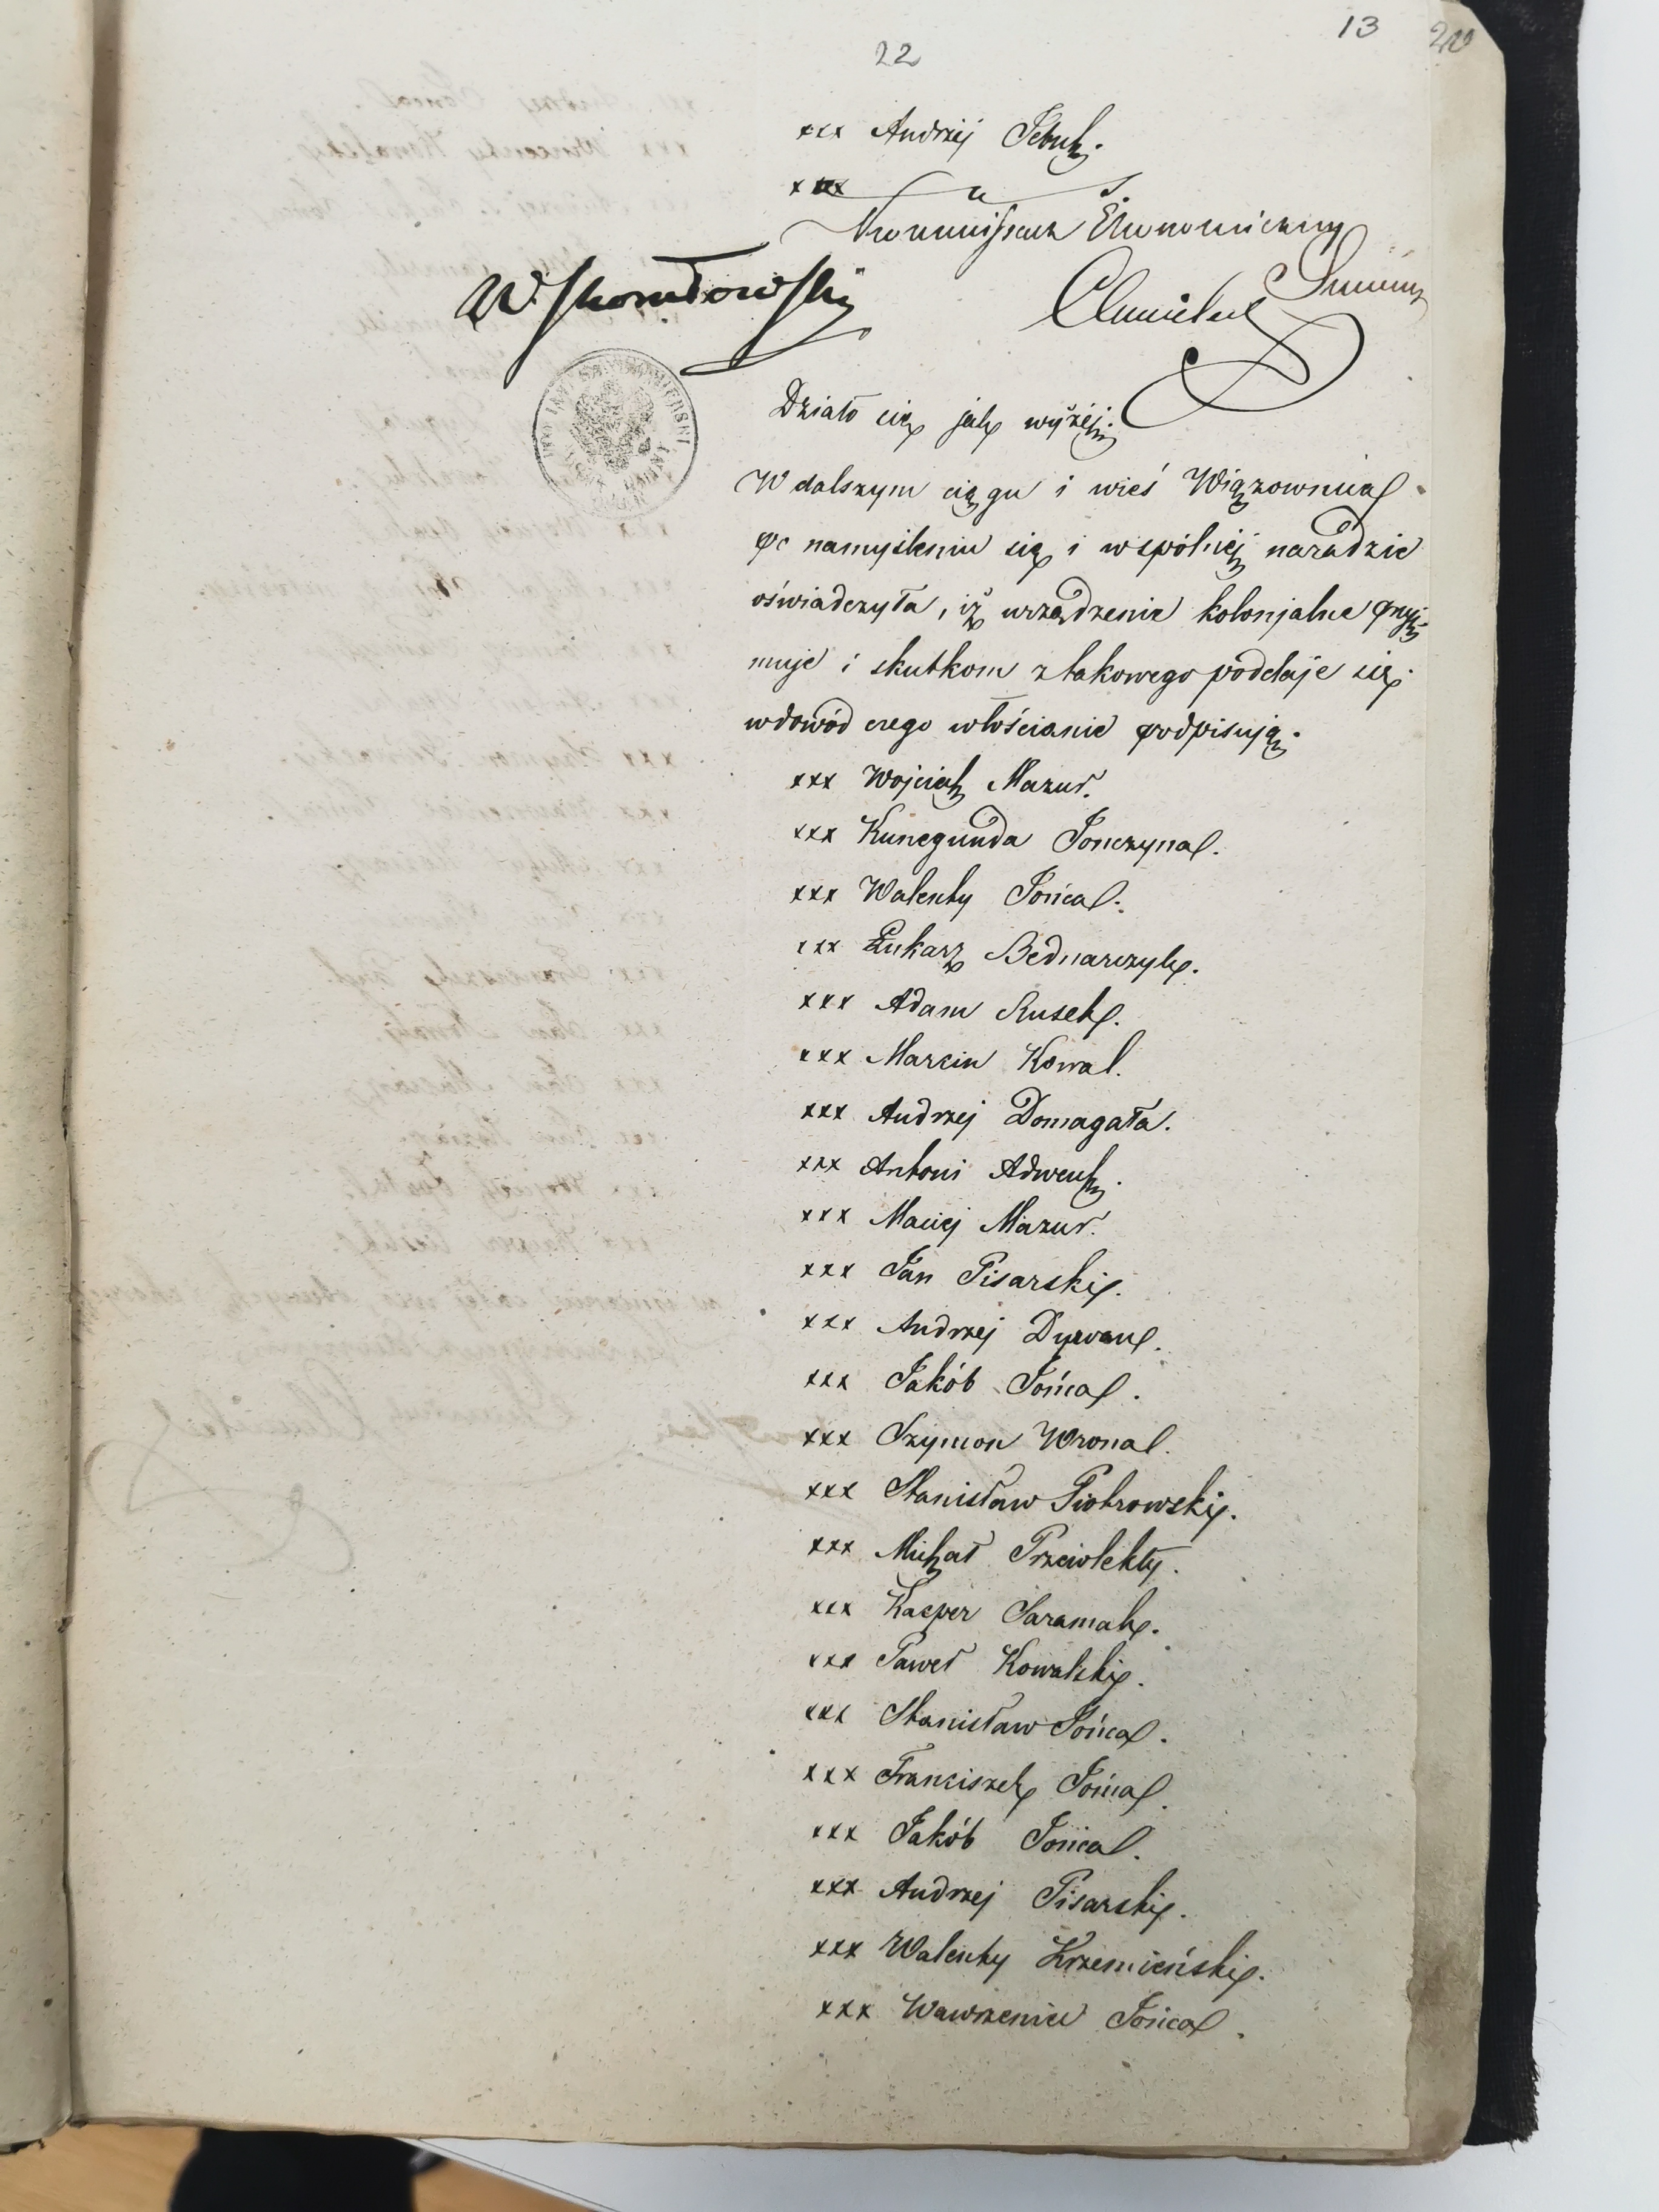 13 20
22
xxx Andrzej
xxx
Kommissarz Ekonomiczny
Działo się jak wyżej.
W dalszym ciągu i wieś Wiązownica
po namyśleniu się i wspólnéj naradzie
oświadczyła, iż urządzenie kolonjalne przyj-
muje i skutkom z takowego poddaje się.
wdowód czego włościanie podpisują.
xxx Wojciech Mazur.
xxx Kunegunda Jończyna.
xxx Walenty Jońca.
xxx Łukasz Bednarczyk.
xxx Adam Rusek.
xxx Marcin Kowal.
xxx Andrzej Domagała.
xxx Antoni Adwent.
xxx Maciej Mazur.
xxx Jan Pisarski.
xxx Andrzej
xxx Jakób Jońca.
xxx Szymon Wrona.
xxx Stanisław Piotrowski.
xxx Michał
xxx Kacper Saramak.
xxx Paweł Kowalski.
xxx Stanisław Jońca.
xxx Franciszek Jońca.
xxx Jakób Jońca.
xxx Andrzej Pisarski.
xxx Walenty Krzemieński.
xxx Wawrzeniec Jońca.